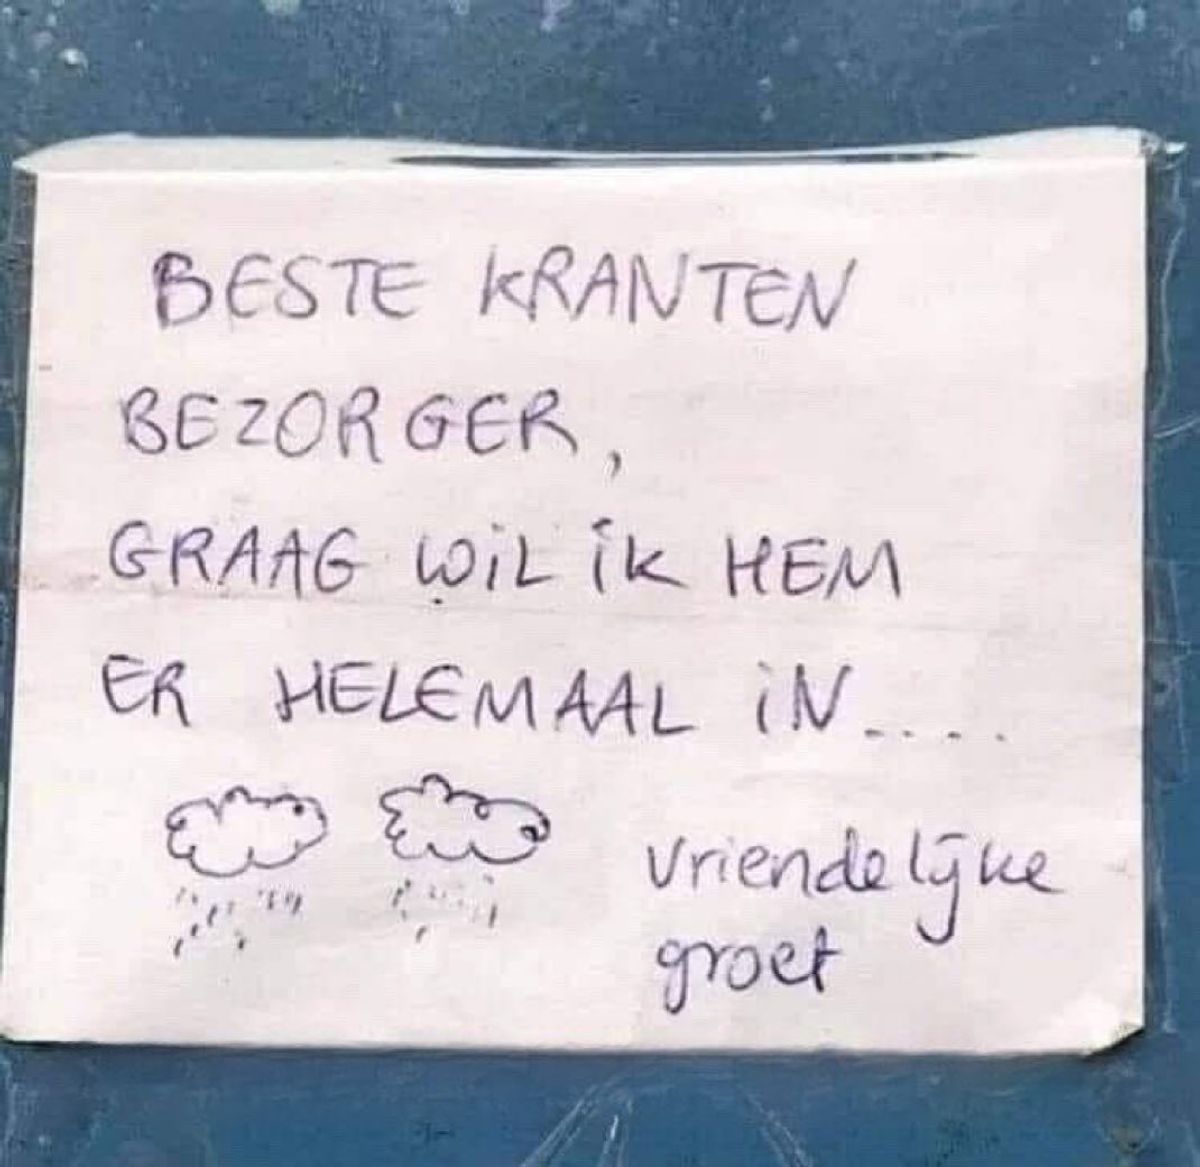 BESTE KRANTEN
BEZORGER,
GRAAG WIL IK HEM
ER HELEMAAL IN.....
vriendelijke
groet